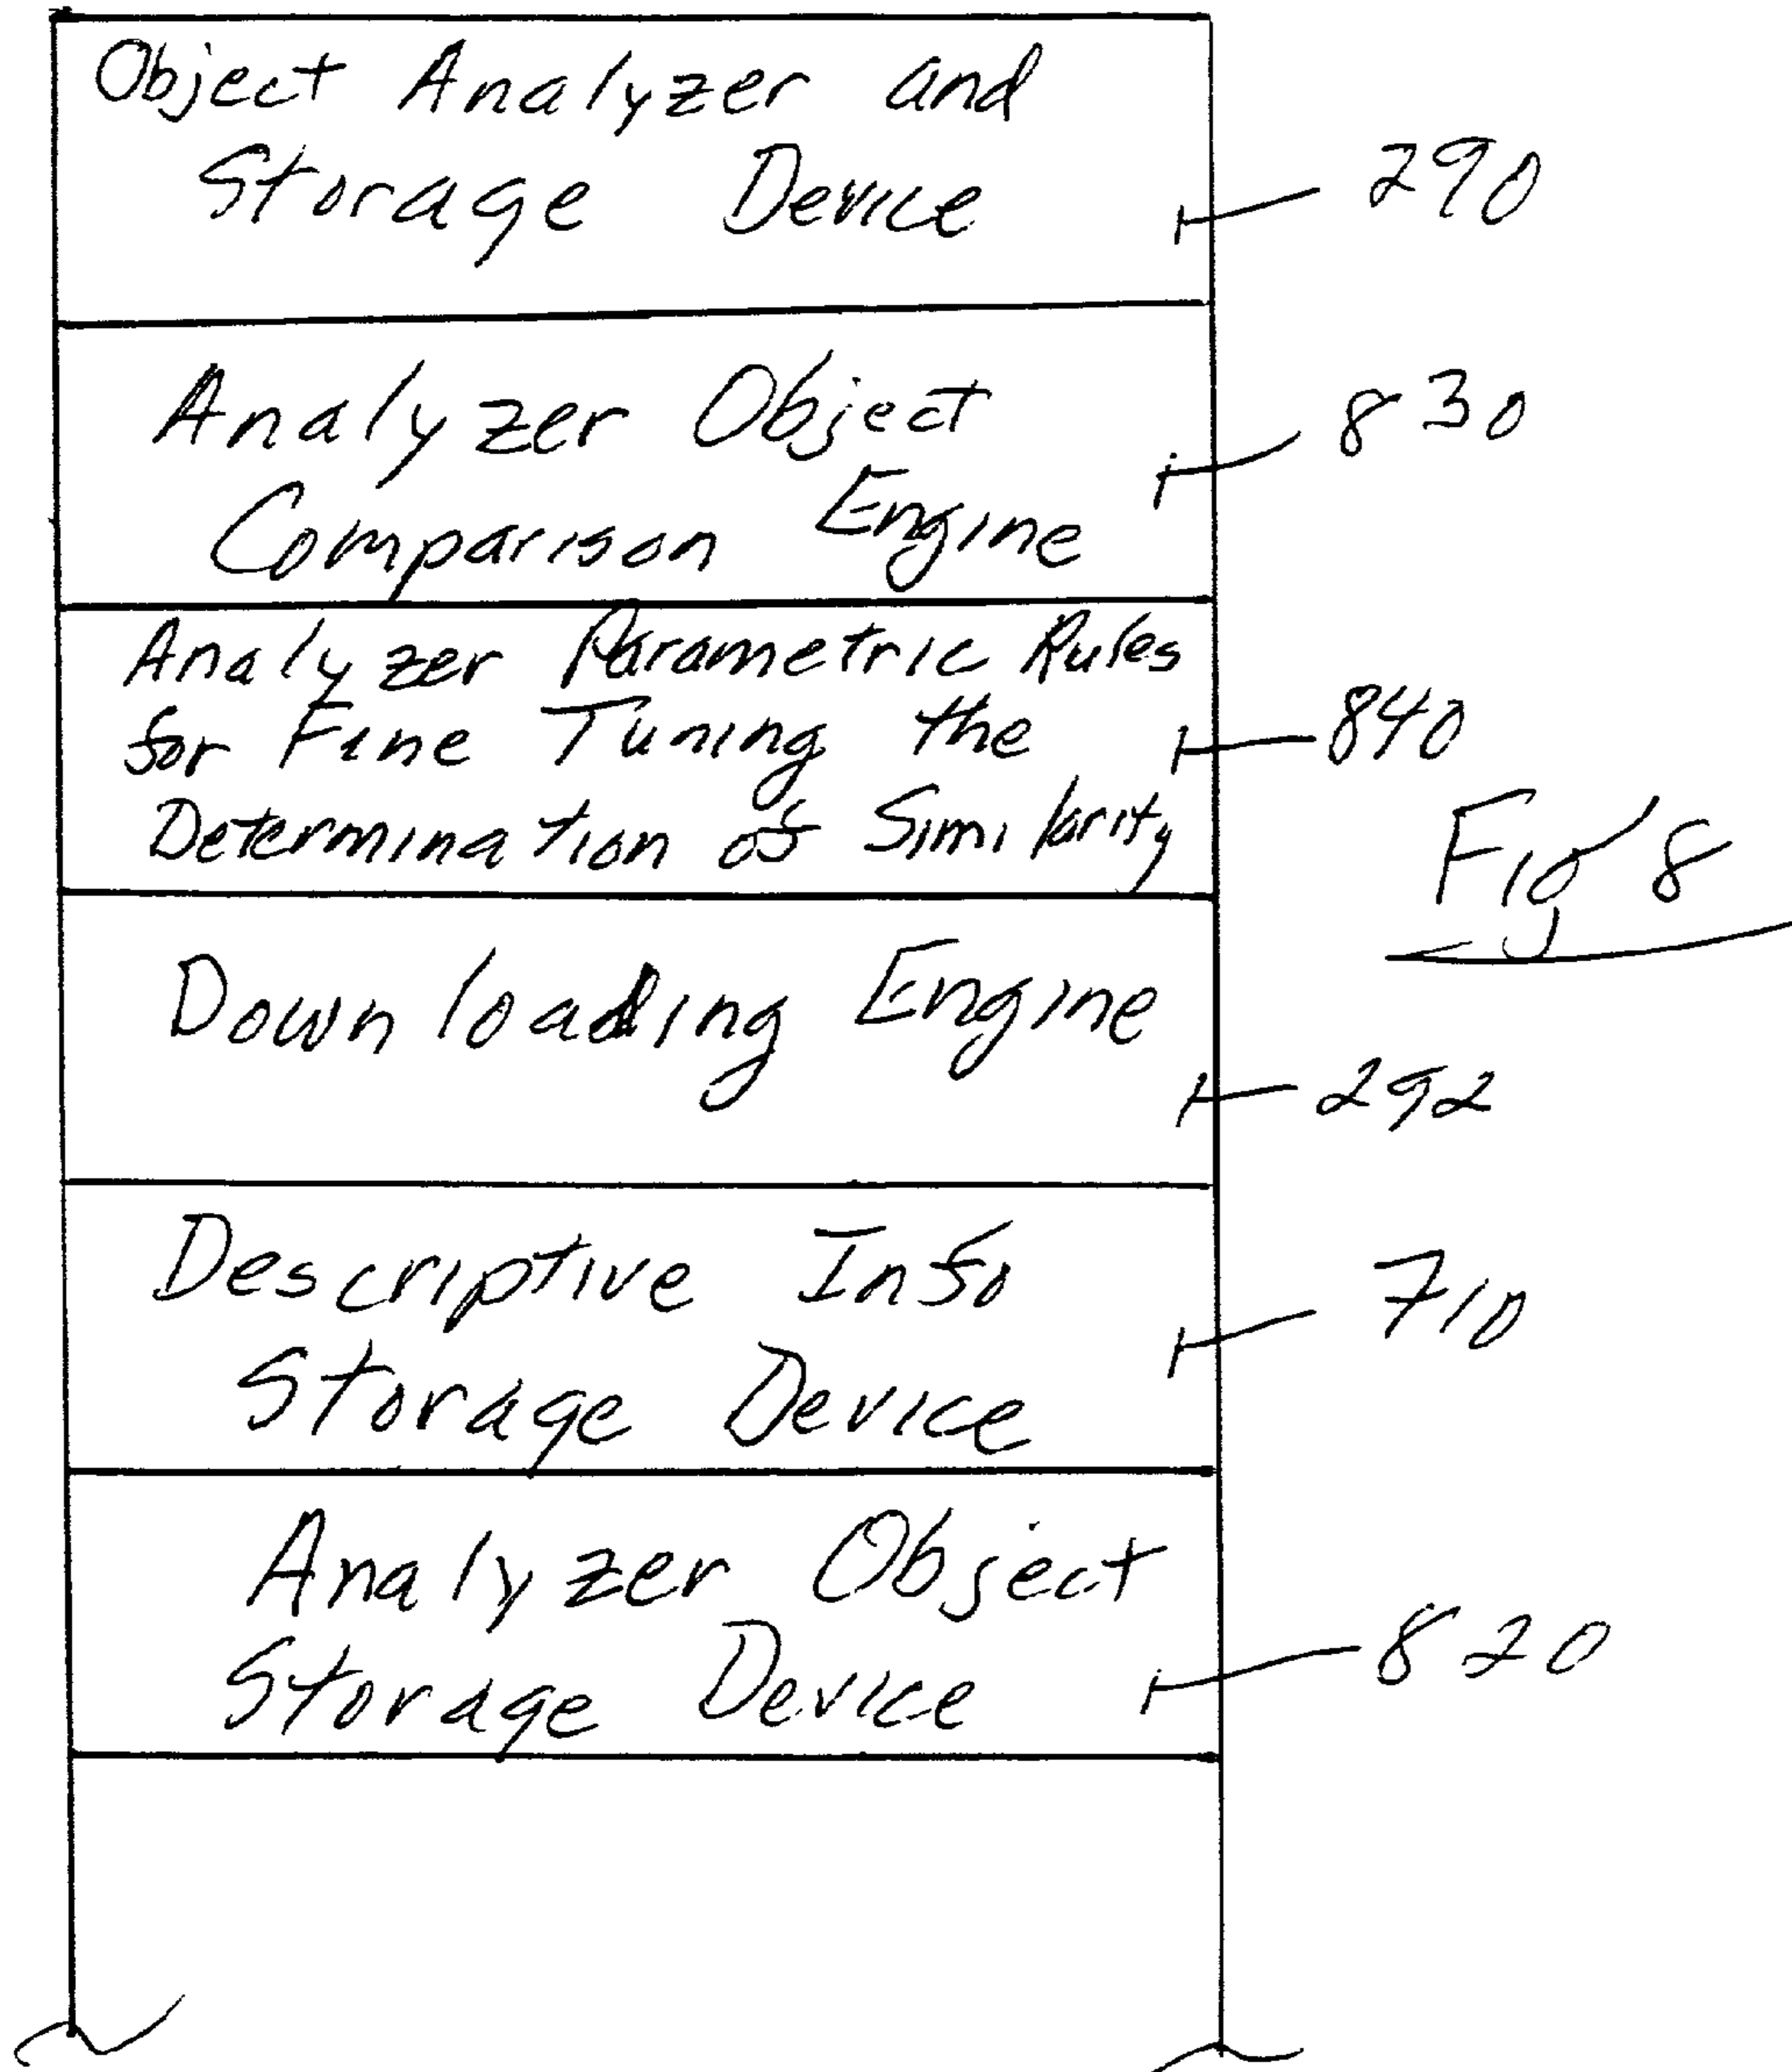 Object Analyzer and
Storage Device
290
Analyzer Object
Comparison Engine
830
Analyzer Parametric Rules
for Fine Tuning the
Determination of Similarity
840
Fig 8
Downloading Engine
292
Descriptive Info
Storage Device
710
Analyzer Object
Storage Device
820